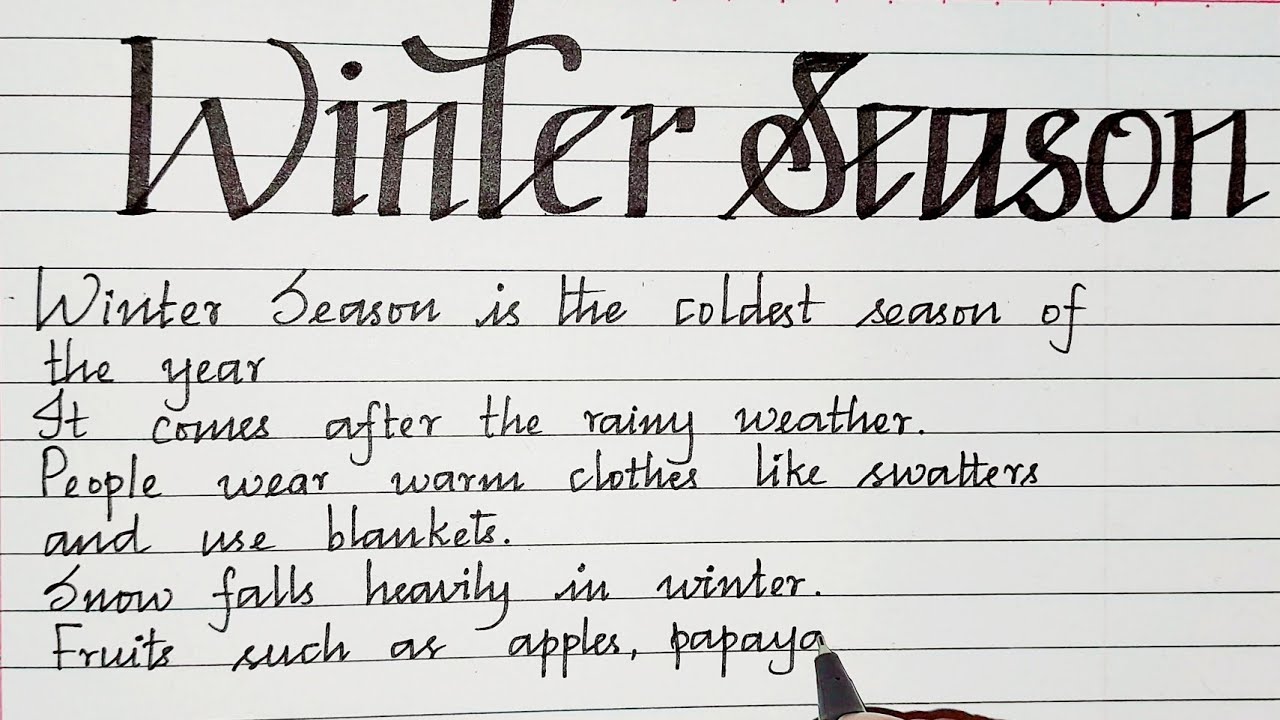 Winter Season
Winter Season is the coldest season of
the year
It comes after the rainy weather.
People wear warm clothes like swatters
and use blankets.
Snow falls heavily in winter.
Fruits such as apples, papaya